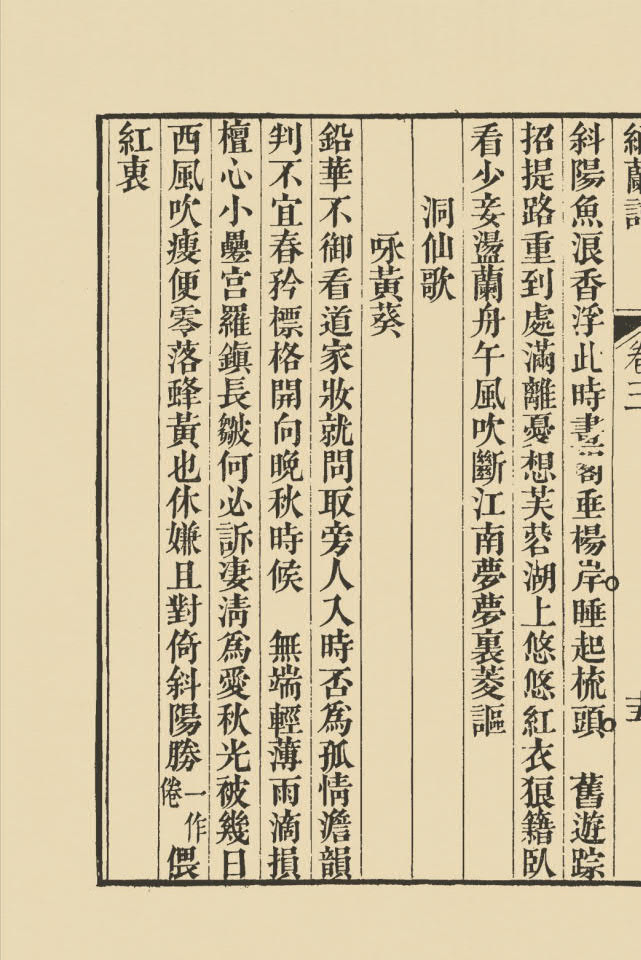 納蘭詞
卷三
斜陽魚浪香浮此時畫閣垂楊岸睡起梳頭　舊遊踪
招提路重到處滿離憂想芙蓉湖上悠悠紅衣狼籍臥
看少妾盪蘭舟午風吹斷江南夢夢裏菱謳
洞仙歌
咏黃葵
鉛華不御看道家妝就問取旁人入時否爲孤情澹韻
判不宜春矜標格開向晚秋時候　無端輕薄雨滴損
檀心小疊宮羅鎮長皺何必訴凄清爲愛秋光被幾日
西風吹瘦便零落蜂黃也休嫌且對倚斜陽勝一作倦偎
紅